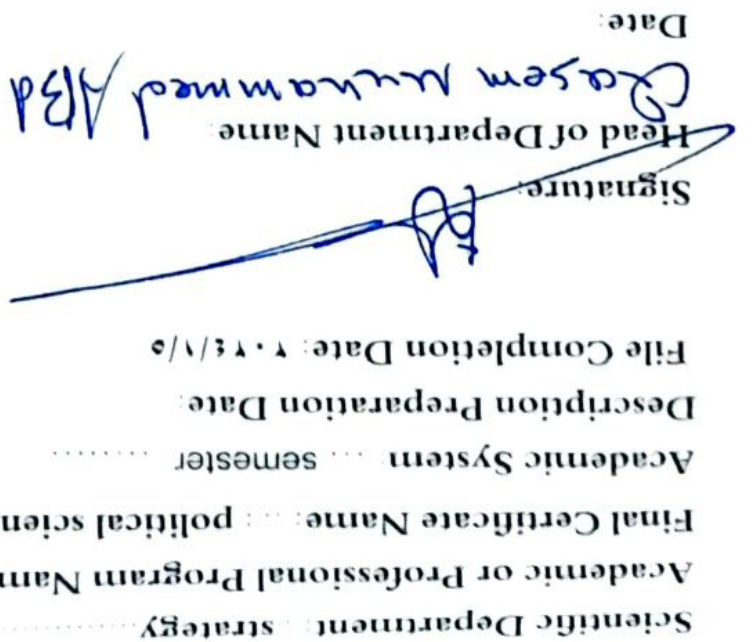 Scientific Department: . strategy ............
Academic or Professional Program Nam
Final Certificate Name: ... : political scien
Academic System ... semester ........
Description Preparation Date:
File Completion Date: ٢٠٢٤/١/٥
Signature:
Head of Department Name:
Qasem Muhammed ABd
Date: